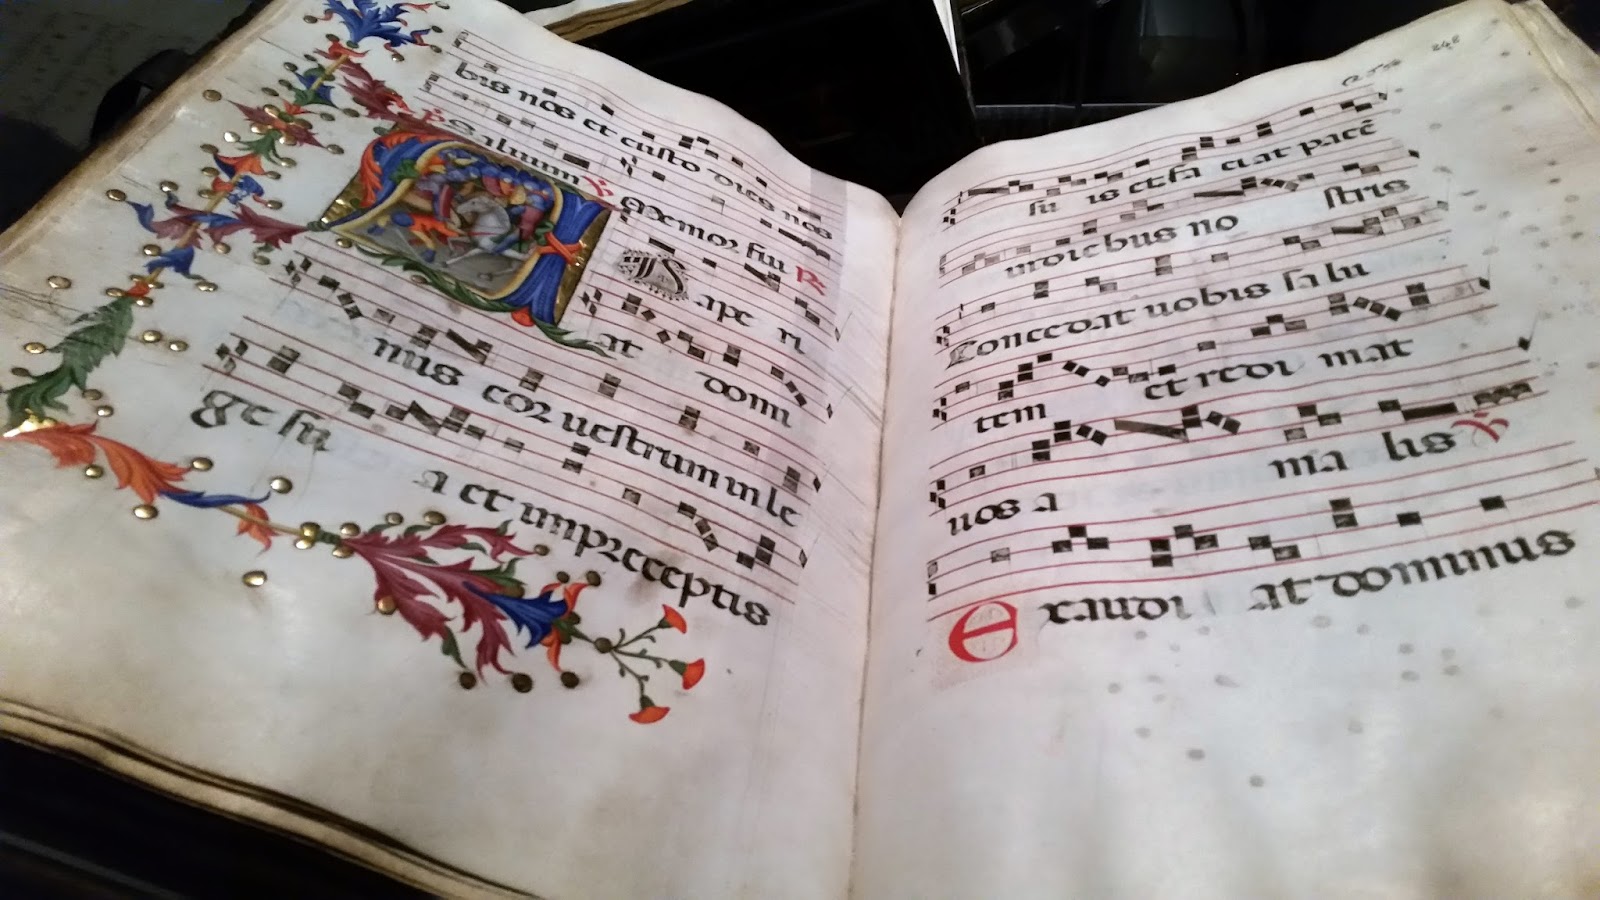 bis nos et custo dies nos
℣ Saluum ℟ Memor fui ℟
A D ape ri
at domi
nus cor uestrum in le
ge su a et in preceptis
248
su is et fa ciat pacē
in diebus no stris
Concedat uobis salu
tem et redi mat
uos a ma lis ℣
Exaudi at dominus